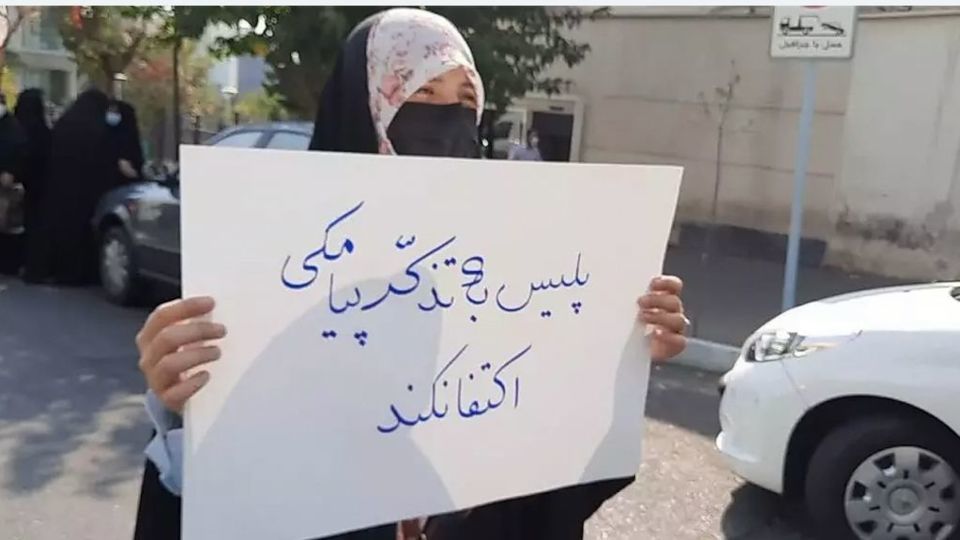 حمل با جرثقیل
پلیس به تذکّر پیامکی
اکتفا نکند